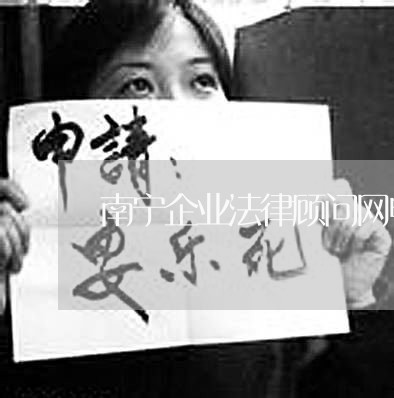 申請：
南宁企业法律顾问网
安乐死